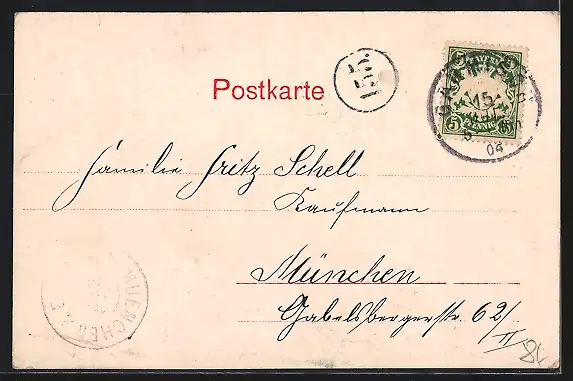 Postkarte
155.
5 PFENNIG
15
5
04
Familie Fritz Schell
Kaufmann
München
Gabelsbergerstr. 62/II
MUENCHEN